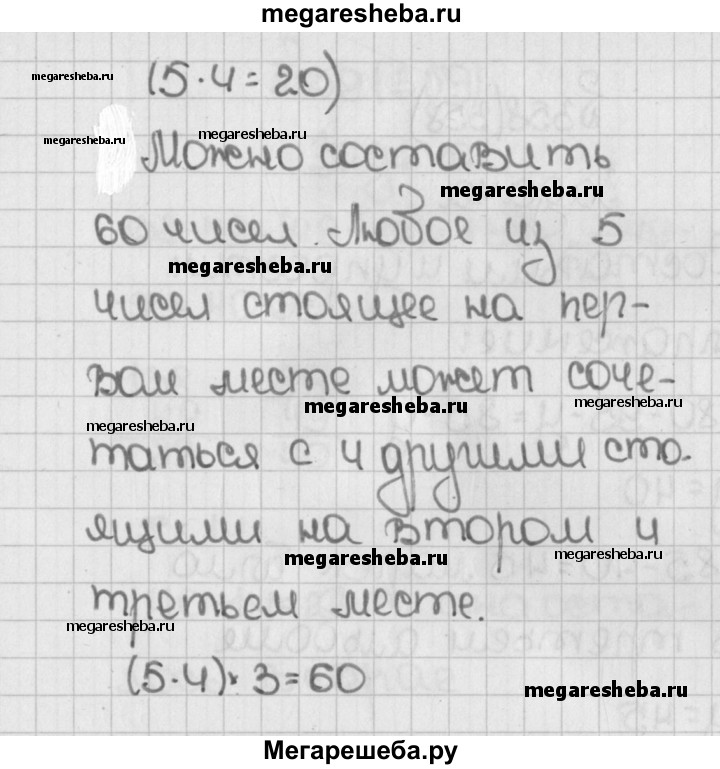 megaresheba.ru
(5·4=20)
megaresheba.ru
megaresheba.ru
megaresheba.ru
Можно составить
megaresheba.ru
60 чисел. Любое из 5
megaresheba.ru
чисел стоящее на пер-
вом месте может соче-
megaresheba.ru
megaresheba.ru
megaresheba.ru
таться с 4 другими сто-
ящими на втором и
megaresheba.ru
megaresheba.ru
третьем месте.
megaresheba.ru
(5·4)·3=60
megaresheba.ru
Мегарешеба.ру